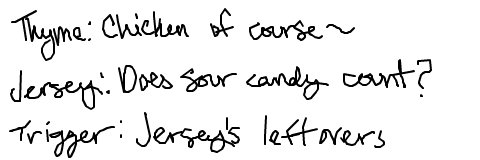 Thyme: Chicken of course~
Jersey: Does sour candy count?
Trigger: Jersey's leftovers